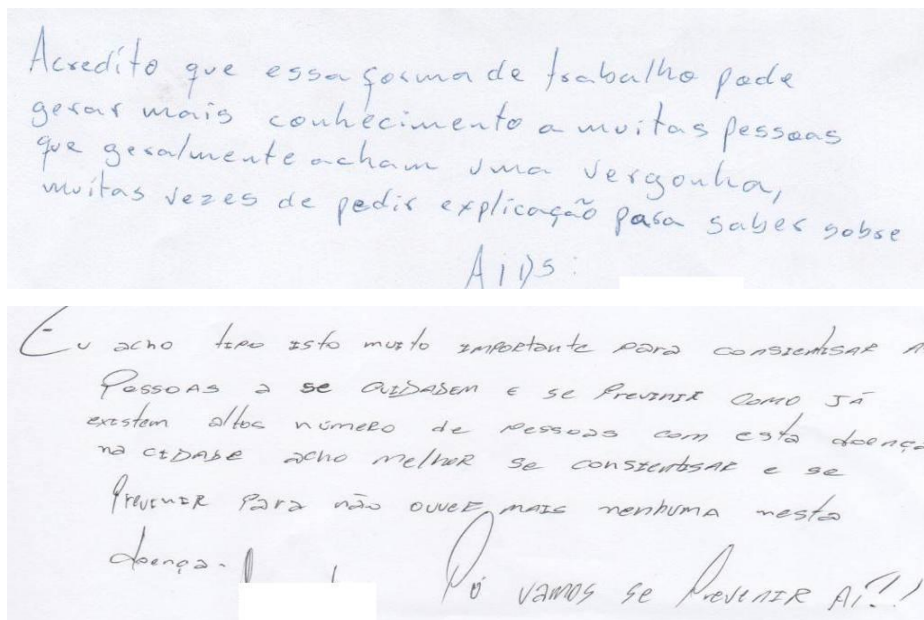 Acredito que essa forma de trabalho pode
gerar mais conhecimento a muitas pessoas
que geralmente acham uma vergonha,
muitas vezes de pedir explicação para saber sobre
AiDS:
Eu acho tipo isto muito importante para consientisar A
Pessoas a se cuidadem e se Prevenir Como JÁ
existem altos número de pessoas com esta doença
na cidade acho melhor se consientisar e se
Prevenir Para não ouver mais nenhuma nesta
doença.
Pô vamos se Prevenir Aí!!